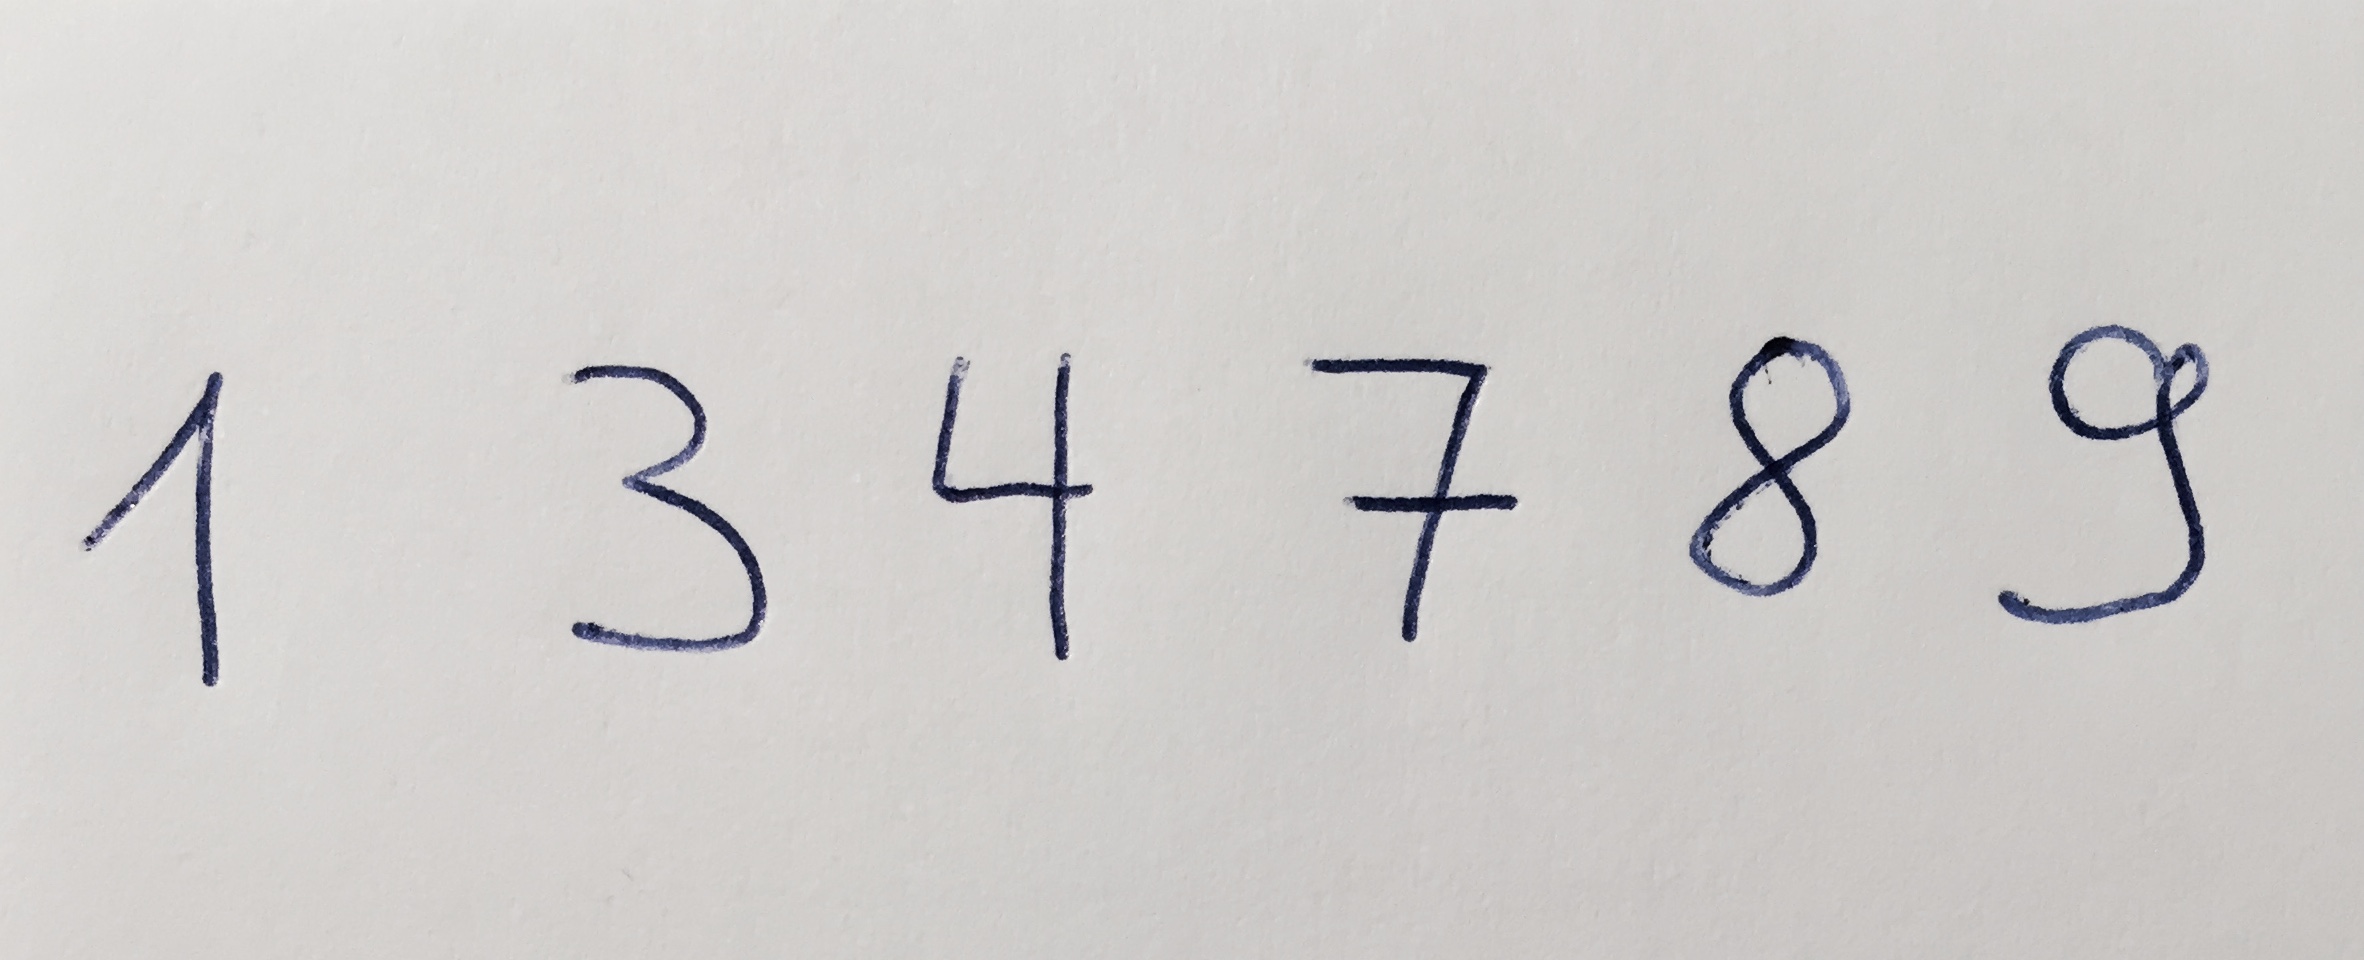 1 3 4 7 8 9